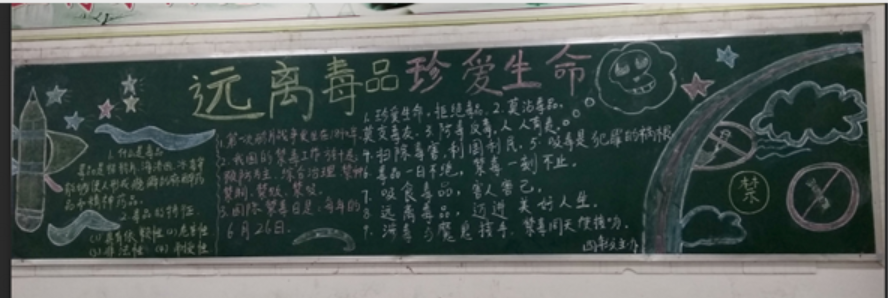 远离毒品珍爱生命
1.什么是毒品
毒品是指鸦片、海洛因、冰毒等
能够使人形成瘾癖的麻醉药
品和精神药品。
2.毒品的特征
(1)具有依赖性(2)危害性
(3)非法性(4)
1.第一次鸦片战争发生在1840年
2.我国的禁毒工作方针是
预防为主,综合治理,禁种
禁制、禁贩、禁吸。
3.国际禁毒日是:每年的
6月26日.
1.珍爱生命,拒绝毒品。2.莫沾毒品,
莫交毒友。3.防毒反毒,人人有责。
4.扫除毒害,利国利民。5.吸毒是犯罪的祸根
6.毒品一日不绝,禁毒一刻不止。
7.吸食毒品,害人害己。
8.远离毒品,迈进美好人生。
9.涉毒与魔鬼携手,禁毒同天使接吻。
禁